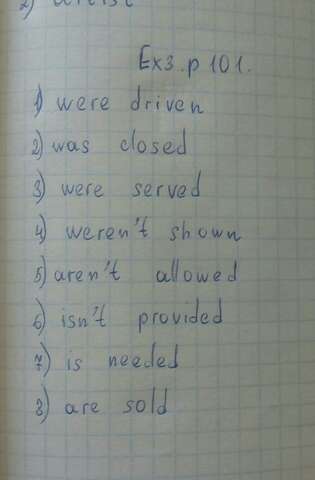 Ex3.p 101.
1) were driven
2) was closed
3) were served
4) weren't shown
5) aren't allowed
6) isn't provided
7) is needed
8) are sold